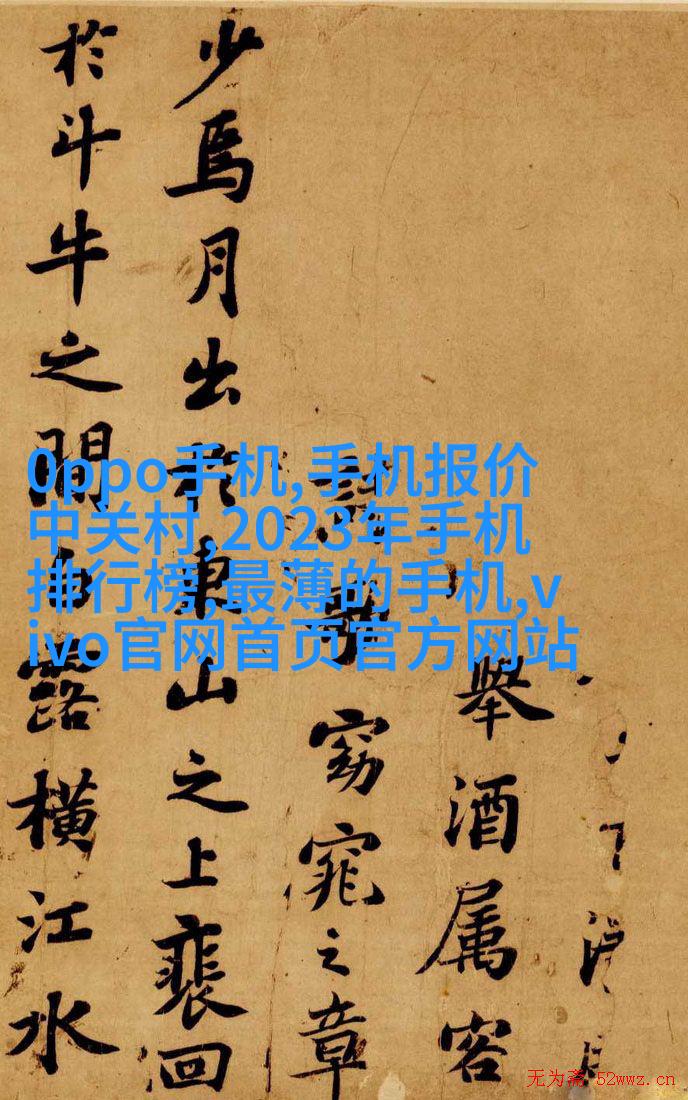 0ppo手机,手机报价
中关村,2023年手机
排行榜,最薄的手机,v
ivo官网首页官方网站
舉酒属客
歌窈窕之章
少焉月出於東山之上裴回
於斗牛之間白露橫江水
无为斋 52wwz.cn